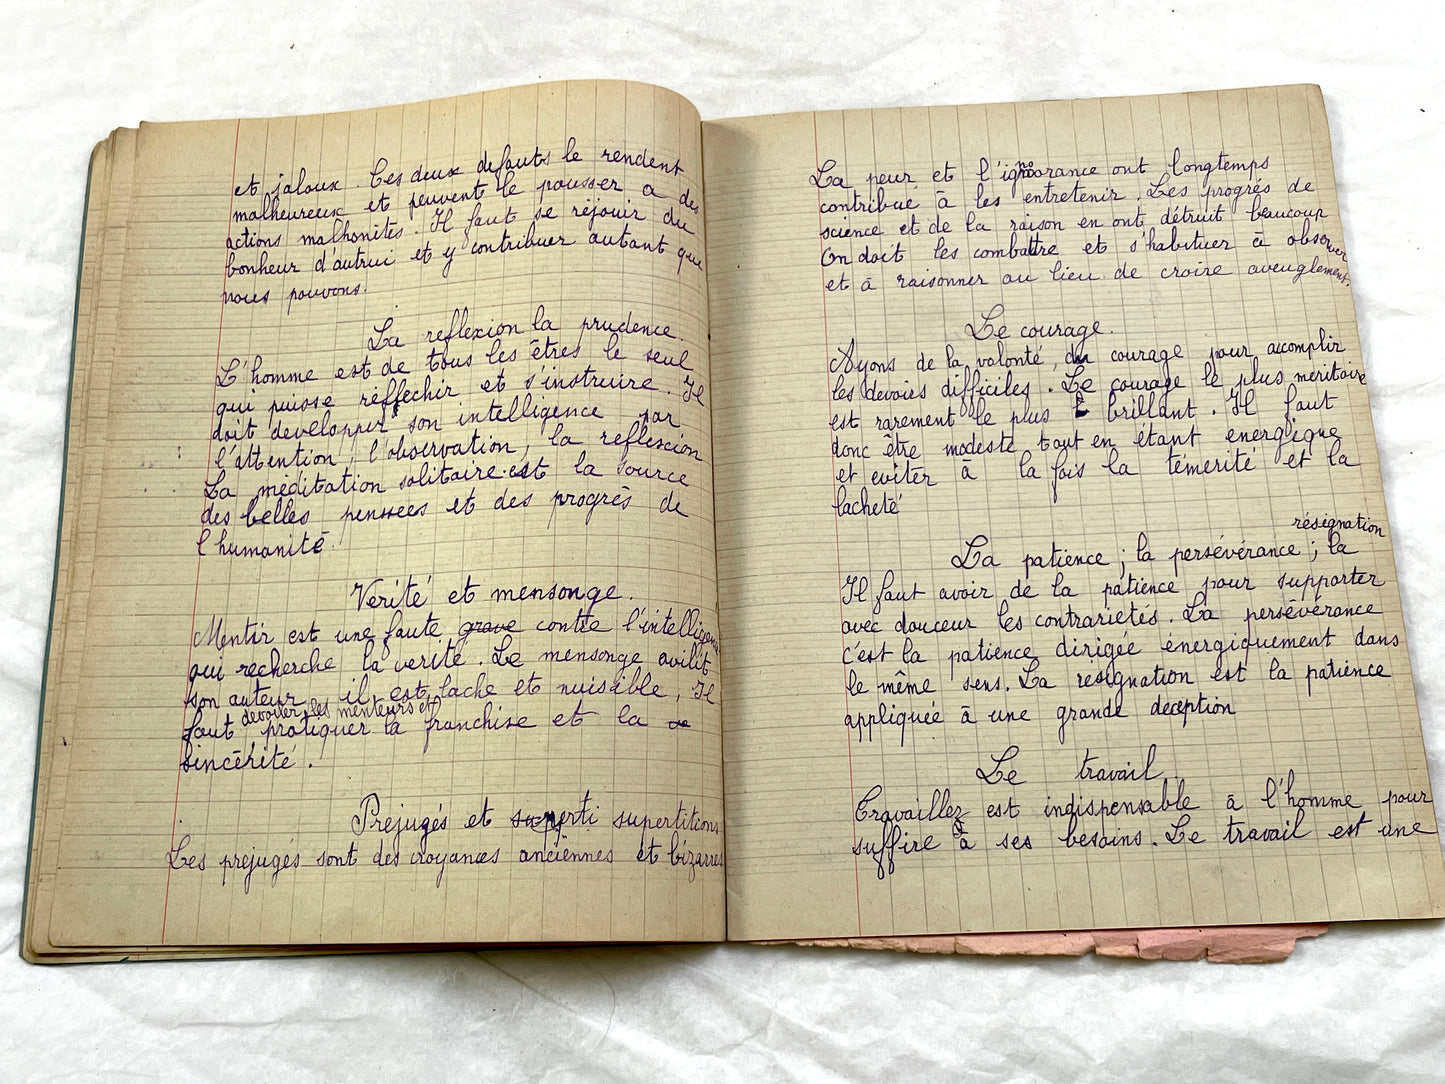 et jaloux. Ces deux defauts le rendent
malheureux et peuvent le pousser a des
actions malhonités. Il faut se réjouir du
bonheur d'autrui et y contribuer autant que
nous pouvons.
La reflexion la prudence.
L'homme est de tous les êtres le seul
qui puisse réflechir et s'instruire. Il
doit developper son intelligence par
l'attention, l'observation, la reflexion
La méditation solitaire est la source
des belles pensees et des progrès de
l'humanité.
Verité et mensonge.
Mentir est une faute grave contre l'intelligence
qui recherche la verité. Le mensonge avilit
son auteur il est lache et nuisible, Il
devoiler les menteurs et
faut pratiquer la franchise et la
sincérité.
Préjugés et superti supertitions
Les préjugés sont des croyances anciennes et bizarres
La peur et l'ignorance ont longtemps
contribué à les entretenir. Les progrès de
science et de la raison en ont détruit beaucoup
On doit les combattre et s'habituer à observer
et à raisonner au lieu de croire aveuglement.
Le courage.
Ayons de la volonté, du courage pour accomplir
les devoirs difficiles. Le courage le plus meritoire
est rarement le plus brillant. Il faut
donc être modeste tout en étant energique
et eviter à la fois la témerité et la
lacheté
résignation
La patience ; la persévérance ; la
Il faut avoir de la patience pour supporter
avec douceur les contrariétés. La persévérance
c'est la patience dirigée énergiquement dans
le même sens. La résignation est la patience
appliquée à une grande deception
Le travail.
Travaillez est indispensable à l'homme pour
suffire à ses besoins. Le travail est une